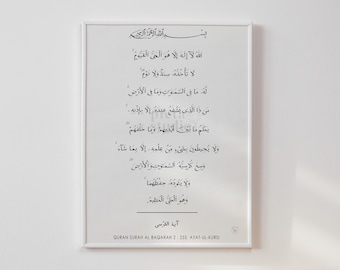 بسم الله الرحمن الرحيم
اللَّهُ لَا إِلَٰهَ إِلَّا هُوَ الْحَيُّ الْقَيُّومُ
لَا تَأْخُذُهُ سِنَةٌ وَلَا نَوْمٌ
لَهُ مَا فِي السَّمَاوَاتِ وَمَا فِي الْأَرْضِ
مَن ذَا الَّذِي يَشْفَعُ عِندَهُ إِلَّا بِإِذْنِهِ
يَعْلَمُ مَا بَيْنَ أَيْدِيهِمْ وَمَا خَلْفَهُمْ
وَلَا يُحِيطُونَ بِشَيْءٍ مِّنْ عِلْمِهِ إِلَّا بِمَا شَاءَ
وَسِعَ كُرْسِيُّهُ السَّمَاوَاتِ وَالْأَرْضَ
وَلَا يَئُودُهُ حِفْظُهُمَا
وَهُوَ الْعَلِيُّ الْعَظِيمُ
آية الكرسي
QURAN SURAH AL BAQARAH 2 : 255 AYAT-UL-KURSI